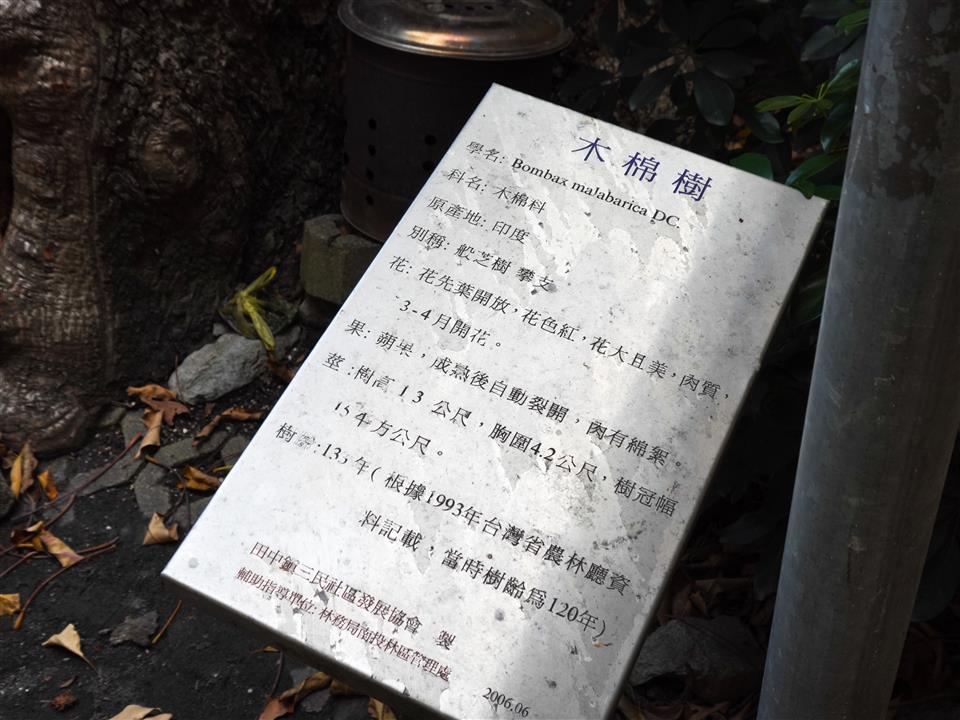 木棉樹
學名: Bombax malabarica DC.
科名: 木棉科
原產地: 印度
別稱: 般芝樹 攀支
花: 花先葉開放,花色紅,花大且美,肉質,
3-4月開花。
果: 蒴果,成熟後自動裂開,內有綿絮。
莖:樹高 13 公尺,胸圍4.2公尺,樹冠幅
154平方公尺。
樹齡:133年( 根據1993年台灣省農林廳資
料記載,當時樹齡為120年)
田中鎮三民社區發展協會 製
輔助指導單位: 林務局南投林區管理處
2006.06